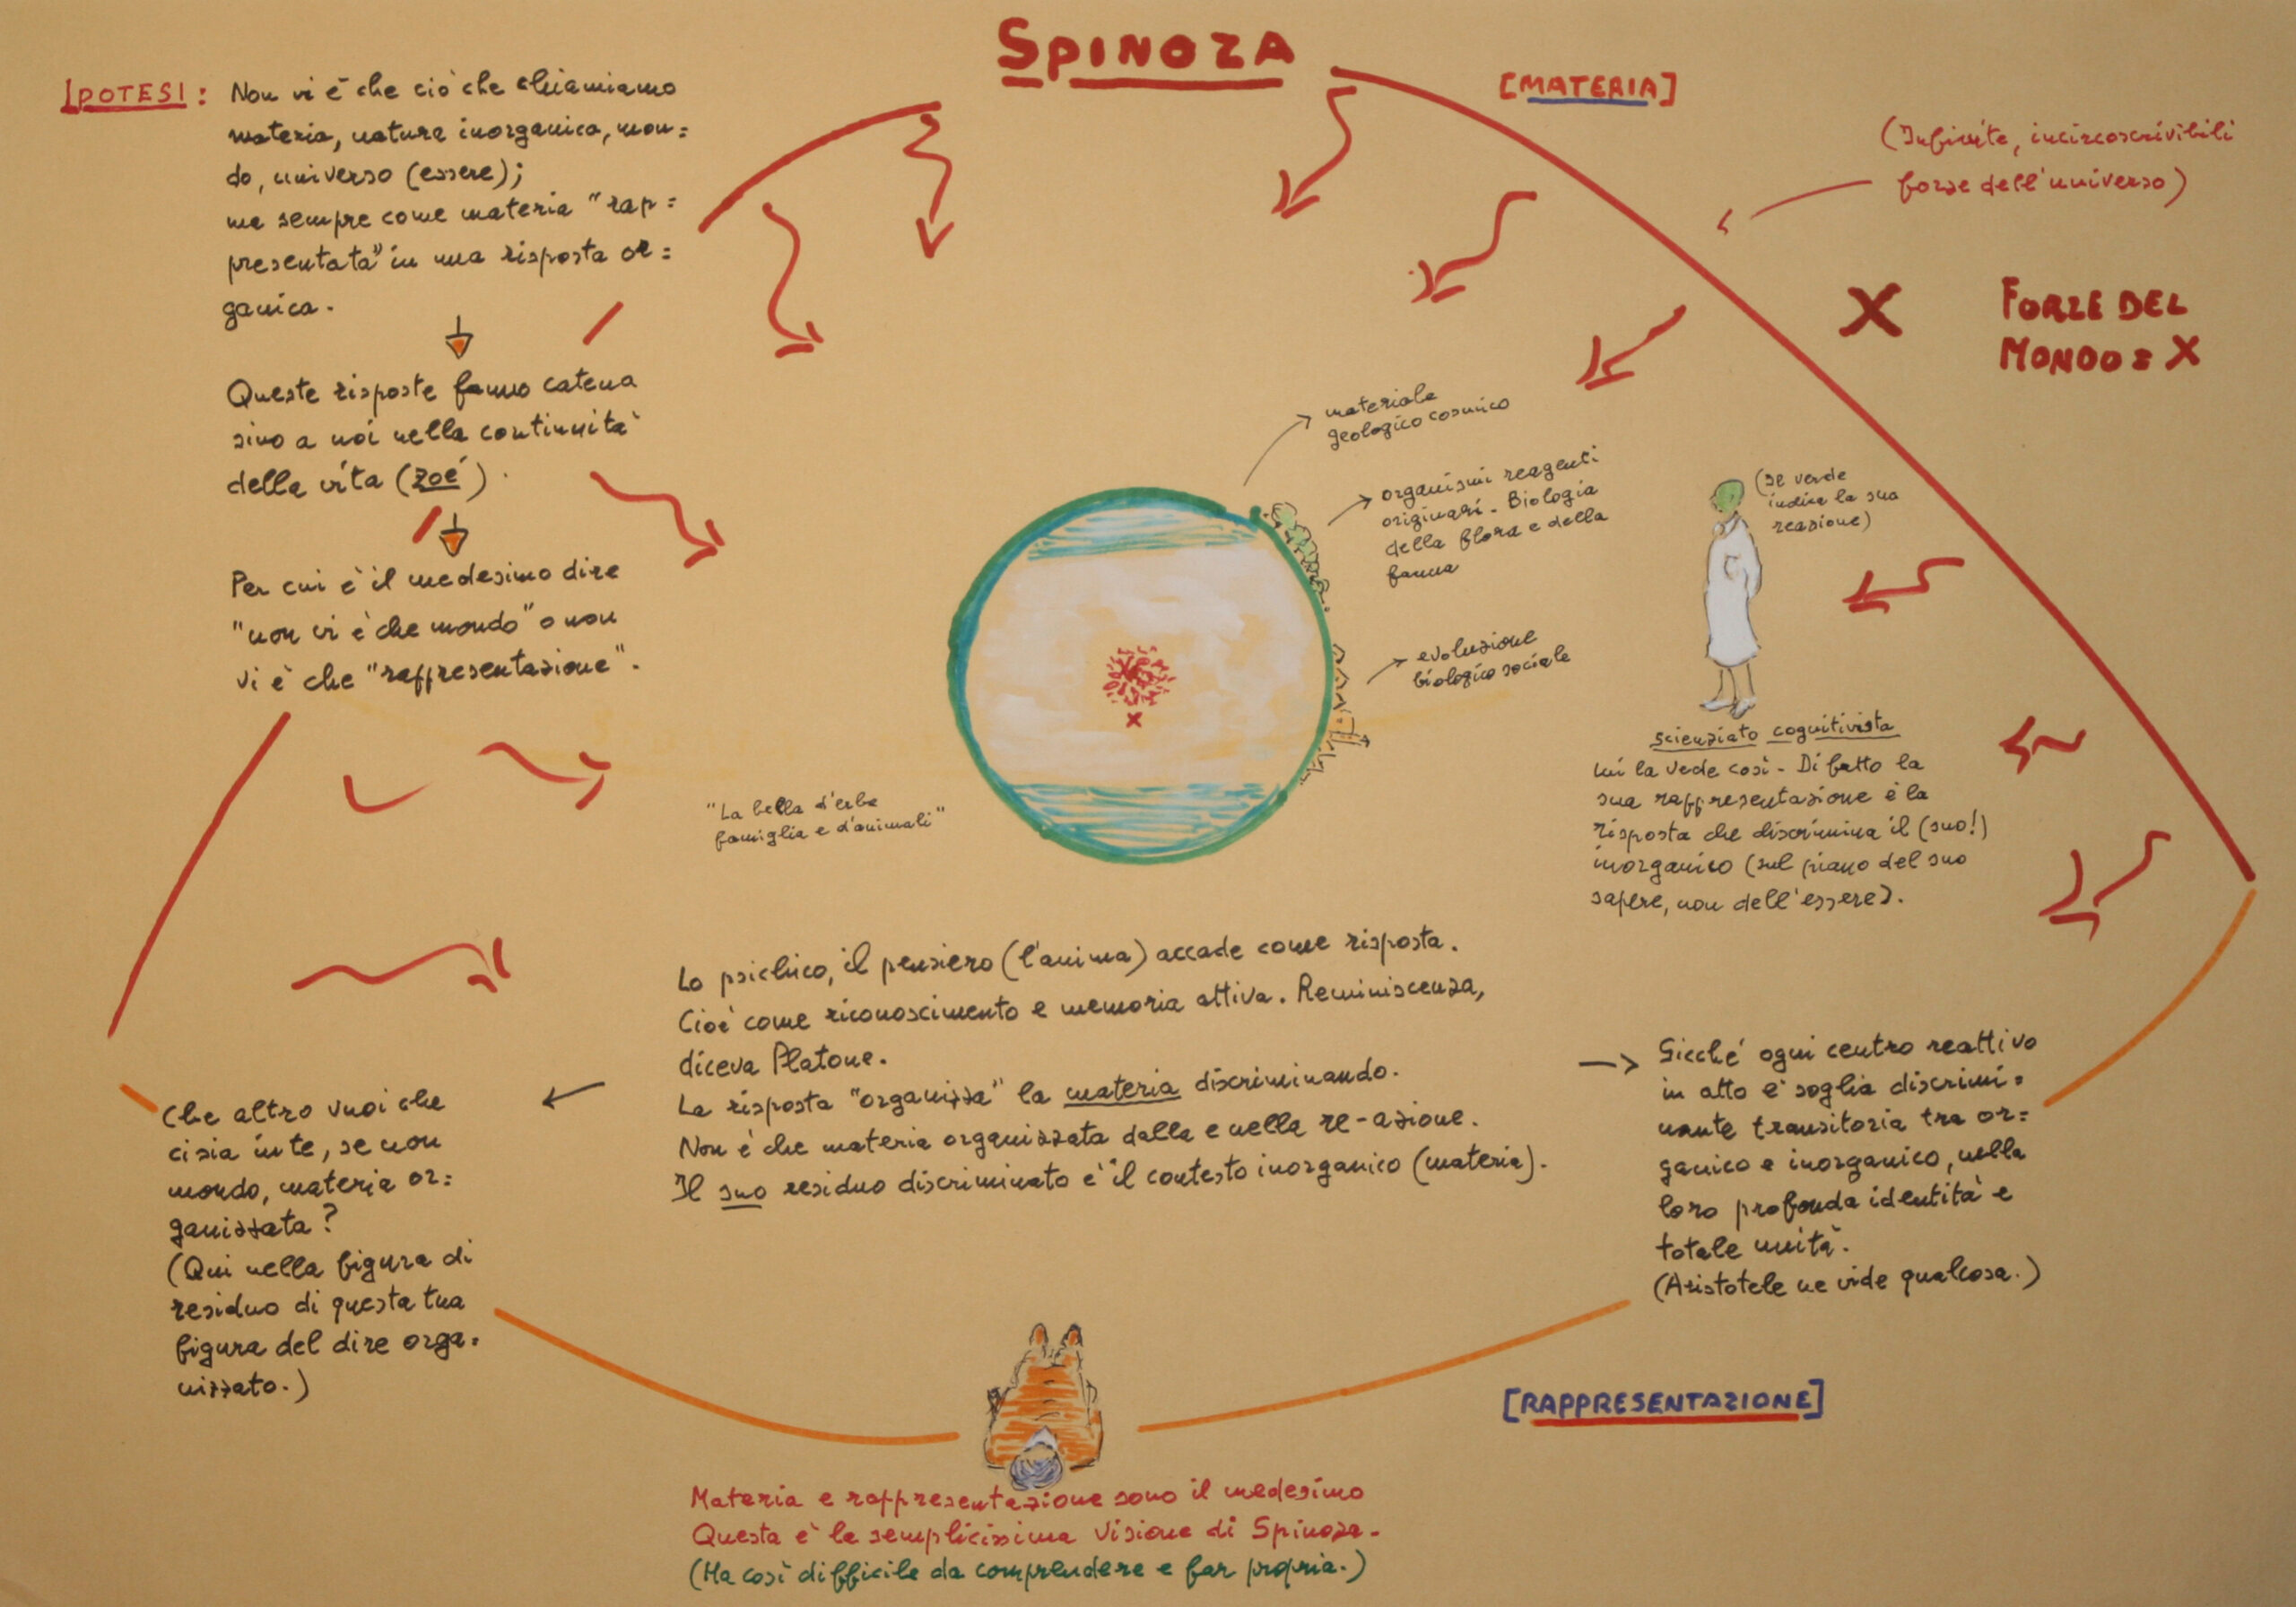 SPINOZA
IPOTESI: Non vi è che ciò che chiamiamo
materia, natura inorganica, mon=
do, universo (essere);
ma sempre come materia "rap=
presentata" in una risposta or=
ganica.
Queste risposte fanno catena
sino a noi nella continuità
della vita (zoé).
Per cui è il medesimo dire
"non vi è che mondo" o non
vi è che "rappresentazione".
[MATERIA]
(Infinite, incircoscrivibili
forze dell'universo)
X
FORZE DEL
MONDO = X
materiale
geologico cosmico
organismi reagenti
originari. Biologia
della flora e della
fauna
evoluzione
biologico sociale
X
(Il verde
indica la sua
reazione)
scienziato cognitivista
lui la vede così. Di fatto la
sua rappresentazione è la
risposta che discrimina il (suo!)
inorganico (sul piano del suo
sapere, non dell'essere).
"La bella d'erbe
famiglia e d'animali"
Lo psichico, il pensiero (l'anima) accade come risposta.
Cioè come riconoscimento e memoria attiva. Reminiscenza,
diceva Platone.
La risposta "organizza" la materia discriminando.
Non è che materia organizzata dalla e nella re-azione.
Il suo residuo discriminato è il contesto inorganico (materia).
Che altro vuoi che
ci sia in te, se non
mondo, materia or=
ganizzata?
(Qui nella figura di
residuo di questa tua
figura del dire orga=
nizzato.)
Sicché ogni centro reattivo
in atto è soglia discrimi=
nante transitoria tra or=
ganico e inorganico, nella
loro profonda identità e
totale unità.
(Aristotele ne vide qualcosa.)
[RAPPRESENTAZIONE]
Materia e rappresentazione sono il medesimo
Questa è la semplicissima visione di Spinoza.
(Ma così difficile da comprendere e far propria.)